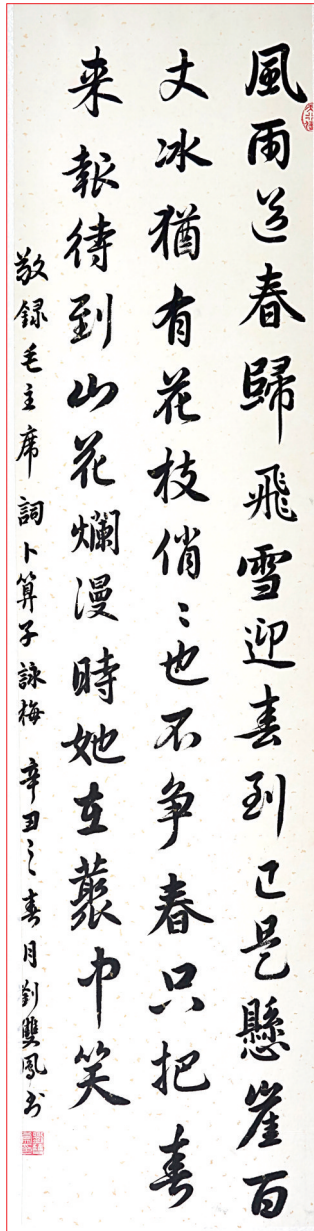 風雨送春歸飛雪迎春到已是懸崖百
丈冰猶有花枝俏〻也不争春只把春
来報待到山花爛漫時她在叢中笑
敬録毛主席詞卜算子詠梅 辛丑之春月劉雙鳳书